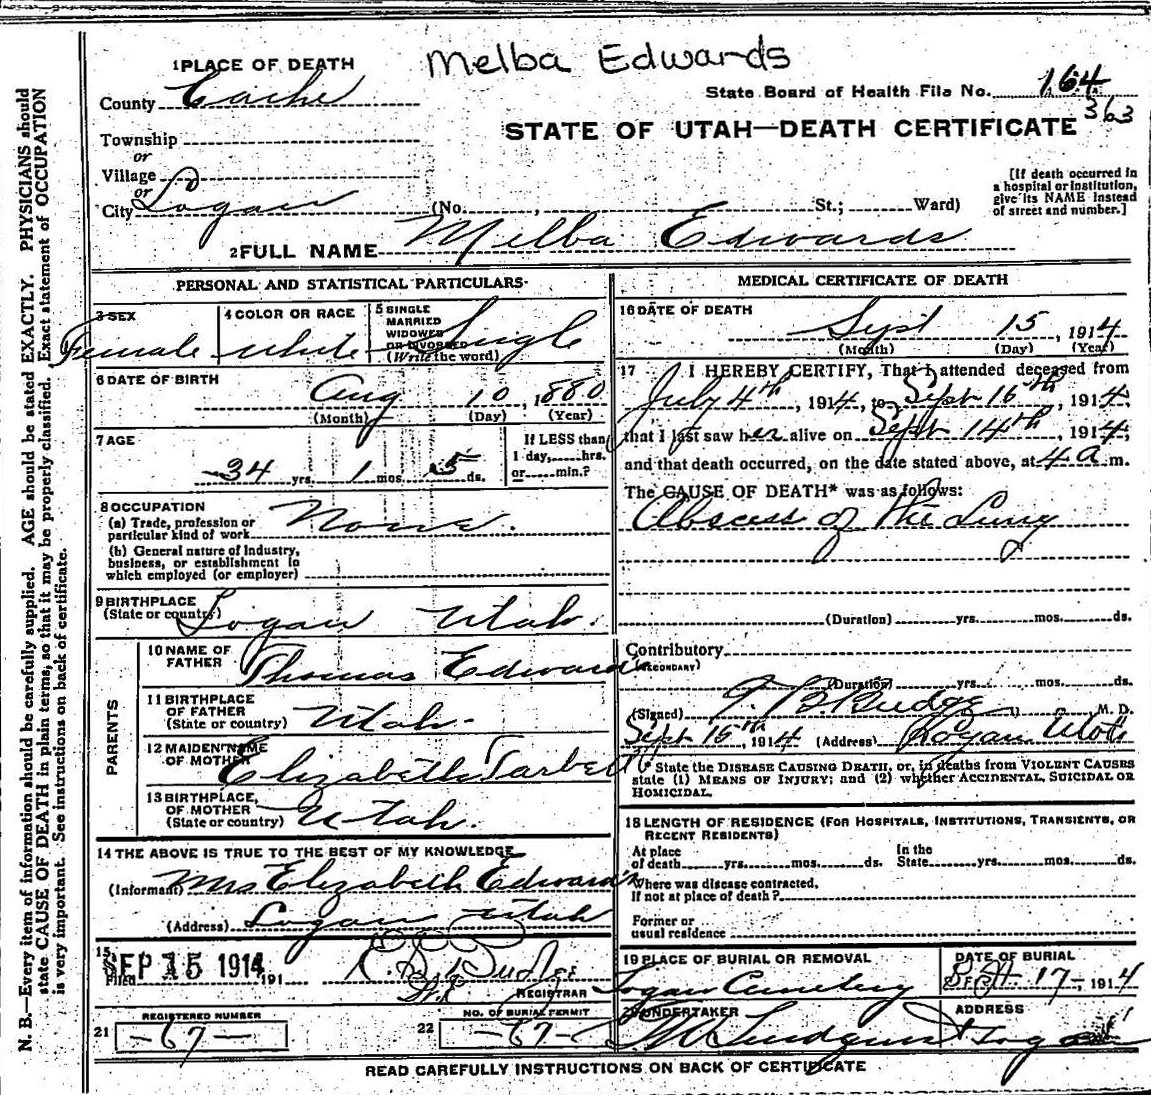 Melba Edwards
1 PLACE OF DEATH
County Cache
State Board of Health File No. 164
363
STATE OF UTAH—DEATH CERTIFICATE
Township
or
Village
or
City Logan (No. , St.; Ward)
[If death occurred in
a hospital or institution,
give its NAME instead
of street and number.]
2 FULL NAME Melba Edwards
PERSONAL AND STATISTICAL PARTICULARS
3 SEX
Female
4 COLOR OR RACE
White
5 SINGLE
MARRIED
WIDOWED
OR DIVORCED
(Write the word)
Single
6 DATE OF BIRTH
Aug 10, 1880
(Month) (Day) (Year)
7 AGE
34 yrs. 1 mos. 5 ds.
If LESS than
1 day, hrs.
or min.?
8 OCCUPATION
(a) Trade, profession or
particular kind of work None.
(b) General nature of industry,
business, or establishment in
which employed (or employer)
9 BIRTHPLACE
(State or country) Logan Utah.
PARENTS
10 NAME OF
FATHER Thomas Edwards
11 BIRTHPLACE
OF FATHER
(State or country) Utah.
12 MAIDEN NAME
OF MOTHER Elizabeth Tarbet
13 BIRTHPLACE
OF MOTHER
(State or country) Utah.
14 THE ABOVE IS TRUE TO THE BEST OF MY KNOWLEDGE
(Informant) Mrs Elizabeth Edwards
(Address) Logan Utah
15
Filed SEP 15 1914 191
REGISTRAR
21 REGISTERED NUMBER
—67—
22 NO. OF BURIAL PERMIT
—67—
MEDICAL CERTIFICATE OF DEATH
16 DATE OF DEATH
Sept 15, 1914
(Month) (Day) (Year)
17 I HEREBY CERTIFY, That I attended deceased from
July 4th, 1914, to Sept 15th, 1914,
that I last saw her alive on Sept 14th, 1914,
and that death occurred, on the date stated above, at 4 a m.
The CAUSE OF DEATH* was as follows:
Abscess of the Lung
(Duration) yrs. mos. ds.
Contributory
(SECONDARY)
(Duration) yrs. mos. ds.
(Signed) Budge M. D.
Sept 15th, 1914 (Address) Logan Utah
* State the DISEASE CAUSING DEATH, or, in deaths from VIOLENT CAUSES
state (1) MEANS OF INJURY; and (2) whether ACCIDENTAL, SUICIDAL OR
HOMICIDAL.
18 LENGTH OF RESIDENCE (FOR HOSPITALS, INSTITUTIONS, TRANSIENTS, OR
RECENT RESIDENTS)
At place
of death yrs. mos. ds.
In the
State yrs. mos. ds.
Where was disease contracted,
If not at place of death?
Former or
usual residence
19 PLACE OF BURIAL OR REMOVAL
Logan Cemetery
DATE OF BURIAL
Sept. 17—, 1914
20 UNDERTAKER
ADDRESS
Logan
READ CAREFULLY INSTRUCTIONS ON BACK OF CERTIFICATE
N. B.—Every item of information should be carefully supplied. AGE should be stated EXACTLY. PHYSICIANS should
state CAUSE OF DEATH in plain terms, so that it may be properly classified. Exact statement of OCCUPATION
is very important. See instructions on back of certificate.